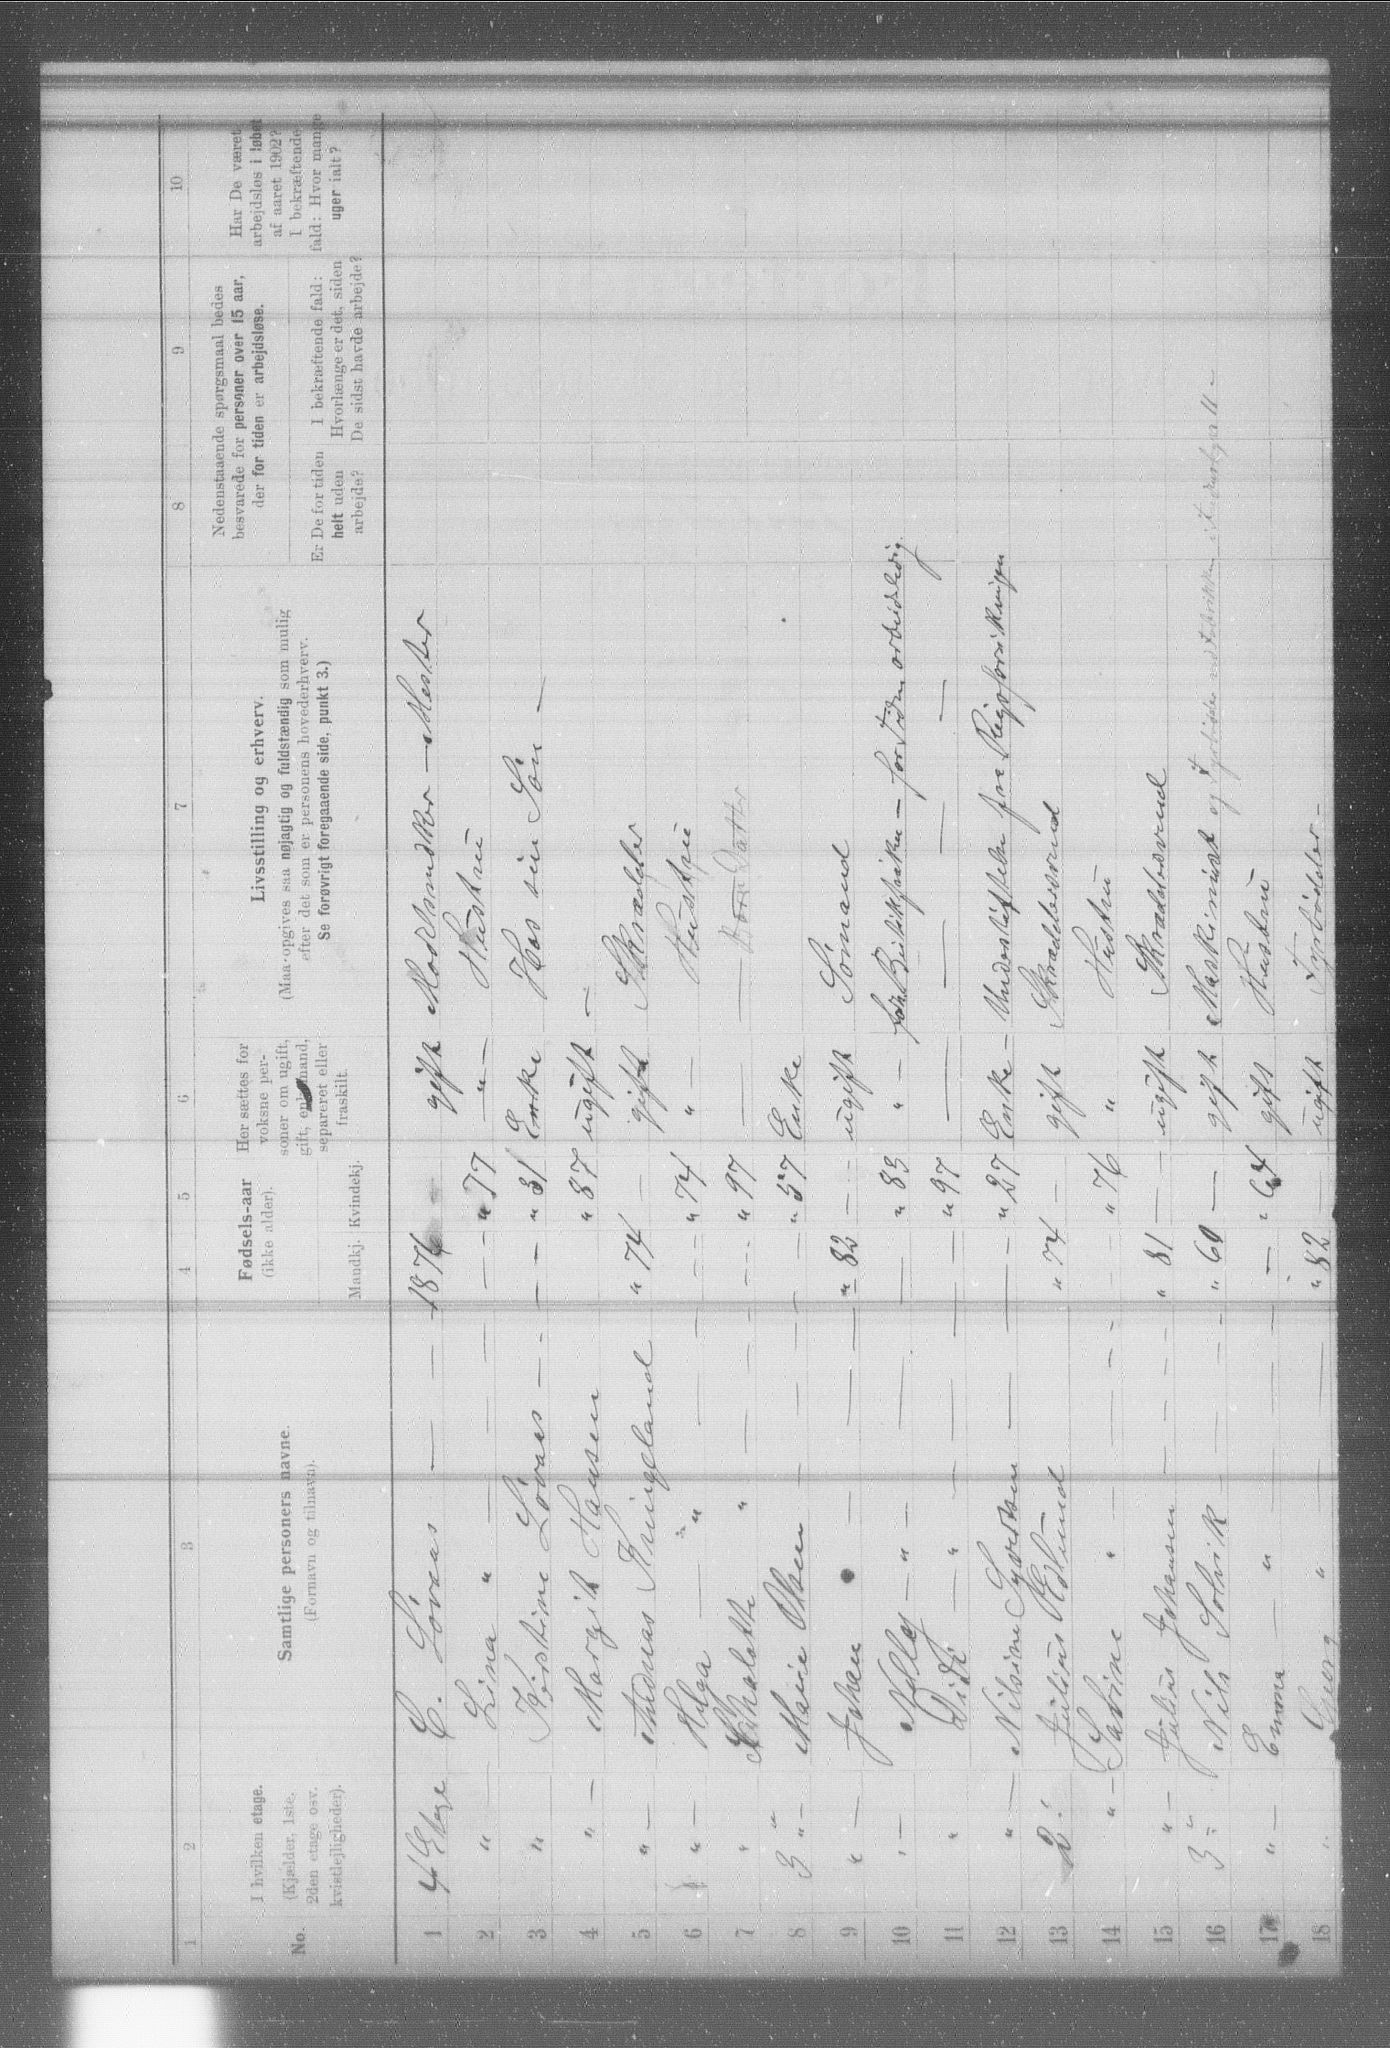 1 2 3 4 5 6 7 8 9 10
No.
I hvilken etage.
(Kjælder, 1ste,
2den etage osv.
kvistlejligheder).
Samtlige personers navne.
(Fornavn og tilnavn).
Fødsels-aar
(ikke alder).
Mandkj. Kvindekj.
Her sættes for
voksne per-
soner om ugift,
gift, enkemand,
separeret eller
fraskilt.
Livsstilling og erhverv.
(Maa opgives saa nøjagtig og fuldstændig som mulig
efter det som er personens hovederhverv.
Se forøvrigt foregaaende side, punkt 3.)
Nedenstaaende spørgsmaal bedes
besvarede for personer over 15 aar,
der for tiden er arbejdsløse.
Er De for tiden
helt uden
arbejde?
I bekræftende fald:
Hvorlænge er det, siden
De sidst havde arbejde?
Har De været
arbejdsløs i løbet
af aaret 1902?
I bekræftende
fald: Hvor mange
uger ialt?
1 4 Etage C. Lövaas — — 1876 gift Mester
2 " — Lina " — — — " 77 — " — Hustru
3 " Kristine Lövaas — - — - " 31 Enke Hos sin Sön —
4 " — Margit Hansen " 87 ugift —
5 " — Andreas Kringeland " 74 — gift Skrædder
6 " — Helga — " — — — " 74 " — Hustru
7 " " — — — " 97 — — Datter
8 3 " — Marie Olsen — — — — " 57 Enke
9 " — Johan — — — " 82 — ugift Sömand
10 " — Nelly — " — — — " 83 " — for Tiden arbeidsledig
11 " — " — — — " 97 — — — — —
12 " — Nilsine Syvertsen — — " 27 Enke — Understöttelse fra
13 2 " Julius " 74 — gift Skræddersvend
14 " — Sabine " — — - — " 76 " Hustru
15 " — Julius Johansen — — - " 81 — ugift Skræddersvend
16 3 " — Nils Solvik — — - " 60 — gift Maskinist og Fyrböder ved Fabrikken
17 " — Emma — " — — — " 64 gift Hustru
18 " Georg " — — " 82 — ugift Fyrböder —